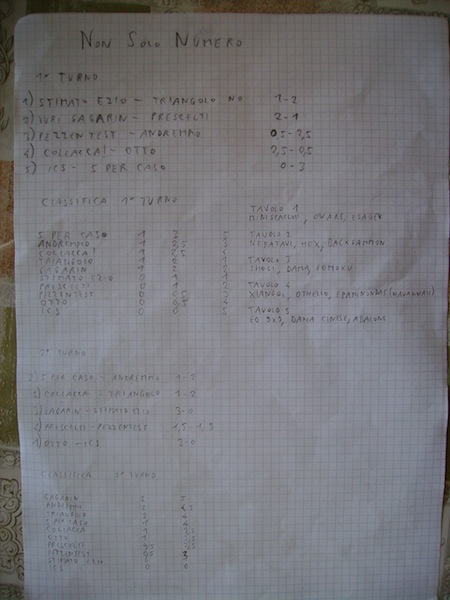 NON SOLO NUMERO
1° TURNO
1) STIMATO EZIO - TRIANGOLO NO 1-2
2) YURI GAGARIN - PRESCELTI 2-1
3) PEZZENTEST - ANDREMMO 0,5-2,5
4) COLLACCA! - OTTO 2,5-0,5
5) ICS - 5 PER CASO 0-3
CLASSIFICA 1° TURNO
5 PER CASO 1 3 5
ANDREMMO 1 2,5 3
COLLACCA! 1 2,5
TRIANGOLO 1 2
GAGARIN 1 2
STIMATO EZIO 0 1
PRESCELTI 0 1 2
PEZZENTEST 0 0,5
OTTO 0 0,5
ICS 0 0 5
TAVOLO 1
OWARE,
TAVOLO 2
HEX, BACKGAMMON
TAVOLO 3
SHOGI, DAMA, GOMOKU
TAVOLO 4
XIANGQI, OTHELLO, EPAMINONDAS
TAVOLO 5
GO 9x9, DAMA CINESE, ABALONE
2° TURNO
5 PER CASO - ANDREMMO 1-2
COLLACCA - TRIANGOLO 1-2
GAGARIN - STIMATO EZIO 3-0
PRESCELTI - PEZZENTEST 1,5-1,5
OTTO - ICS 3-0
CLASSIFICA
GAGARIN 2 5
ANDREMMO 2 4,5
TRIANGOLO 2 4
5 PER CASO 1 4
COLLACCA 1 3,5
OTTO 1 3,5
PRESCELTI 0,5 2,5
PEZZENTEST 0,5 2
STIMATO EZIO 0 1
ICS 0 0